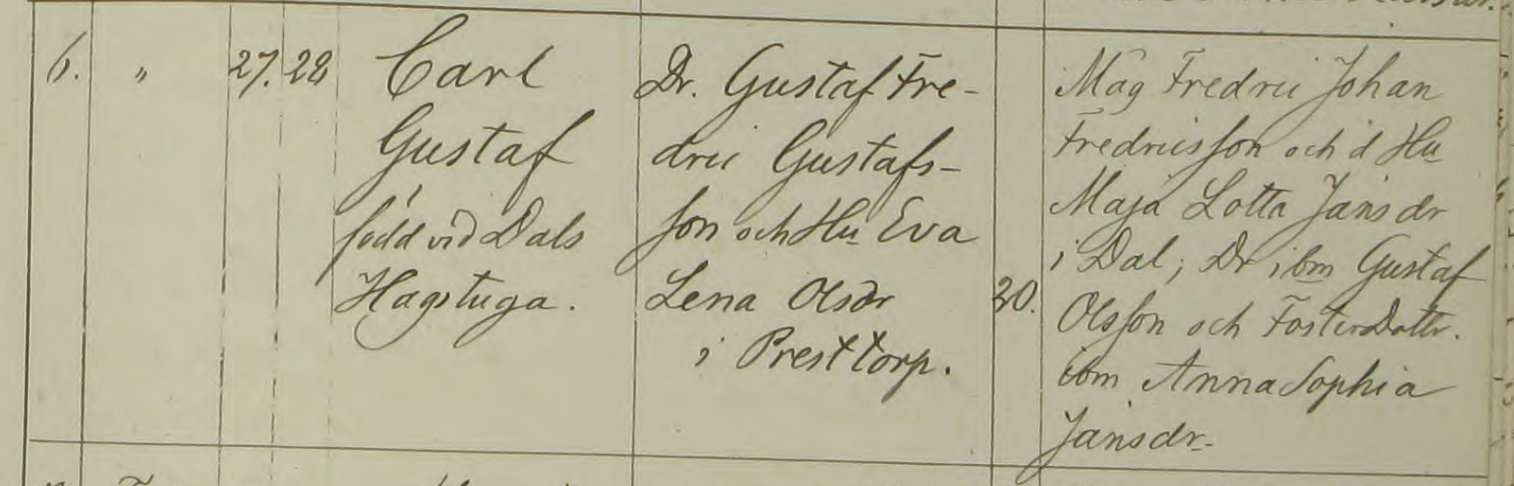 6. " 27. 28
Carl
Gustaf
född vid Dals
Hagstuga.
Dr. Gustaf Fre-
dric Gustafs-
son och Hu Eva
Lena Olsdr
i Presttorp.
20.
Mag Fredric Johan
Fredricsson och d Hu
Maja Lotta Jansdr
i Dal; Dr ibm Gustaf
Olsson och FosterDottr.
ibm Anna Sophia
Jansdr